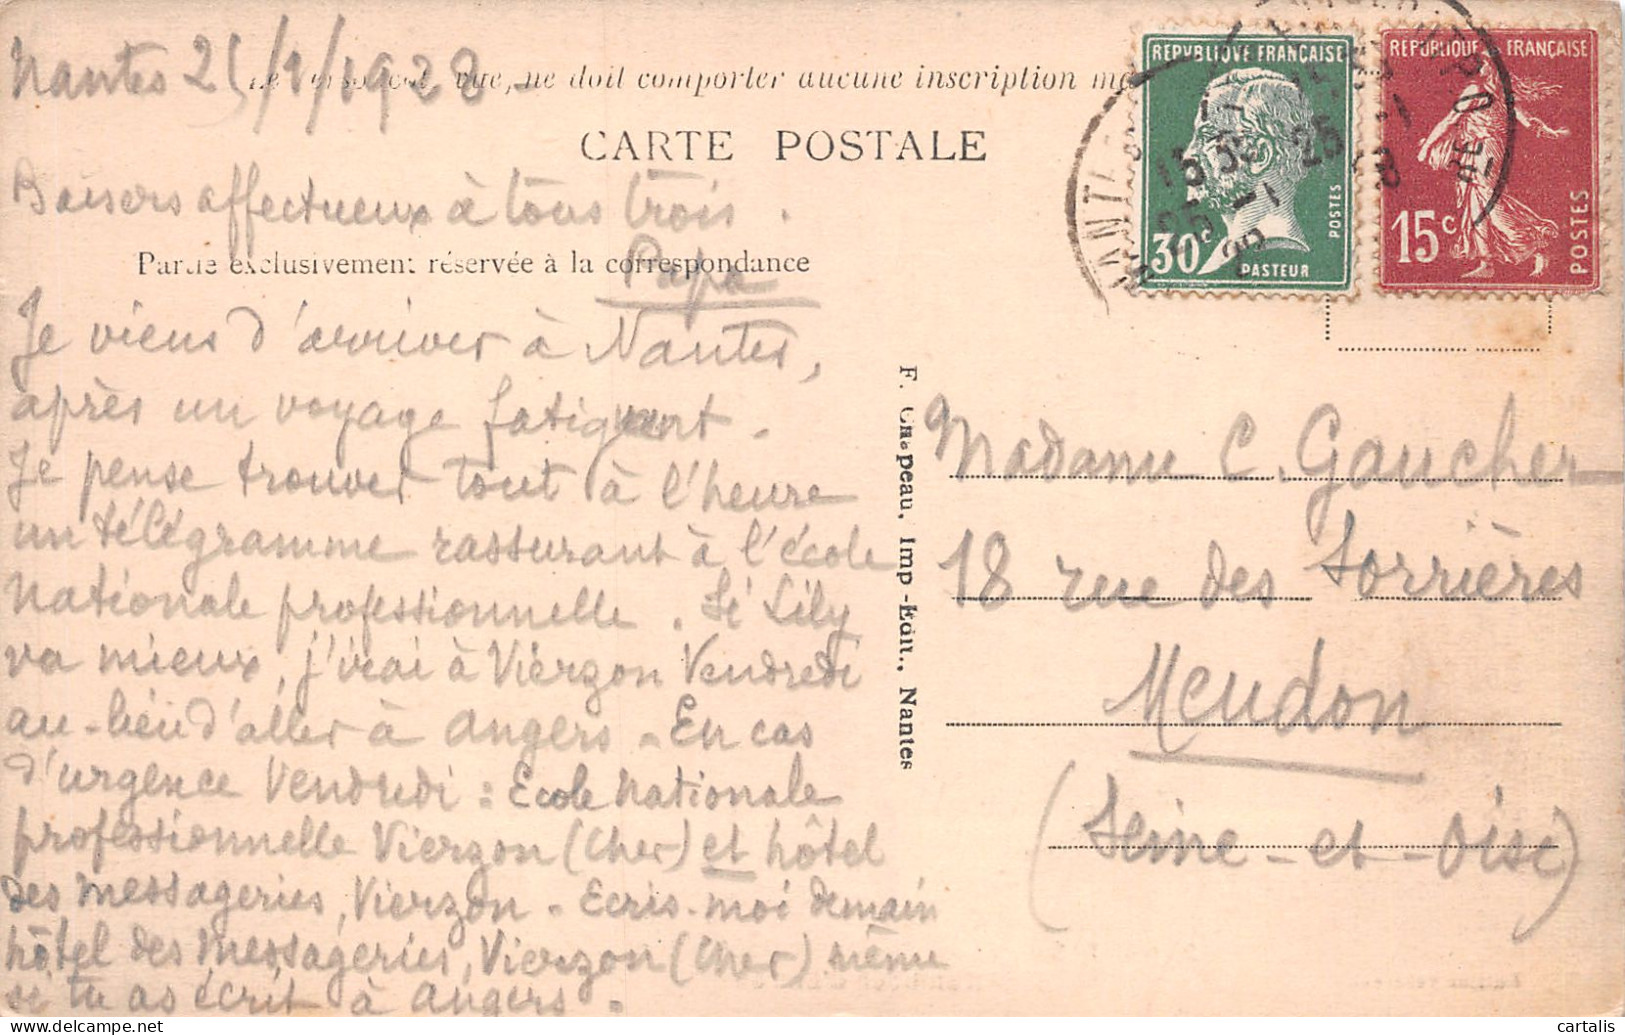 Nantes 25/1/1928 -
vue, ne doit comporter aucune inscription
CARTE POSTALE
Baisers affectueux à tous trois.
Partie exclusivement réservée à la correspondance
Papa
Je viens d'arriver à Nantes,
après un voyage fatigant.
Je pense trouver tout à l'heure
un télégramme rassurant à l'école
Nationale professionnelle. Si Lily
va mieux, j'irai à Vierzon Vendredi
au-lieu d'aller à Angers - En cas
d'urgence Vendredi : Ecole Nationale
professionnelle Vierzon (Cher) et hôtel
des Messageries, Vierzon - Ecris-moi demain
hôtel des Messageries, Vierzon (Cher) même
si tu as écrit à Angers.
REPUBLIQUE FRANÇAISE
30c
POSTES
PASTEUR
REPUBLIQUE FRANÇAISE
15c
POSTES
NANTES
15 30
25 - 1
28
F. Chapeau, Imp.-Edit., Nantes
Madame C. Gaucher
18 rue des Sorrières
Meudon
(Seine-et-Oise)
cartalis
delcampe.net